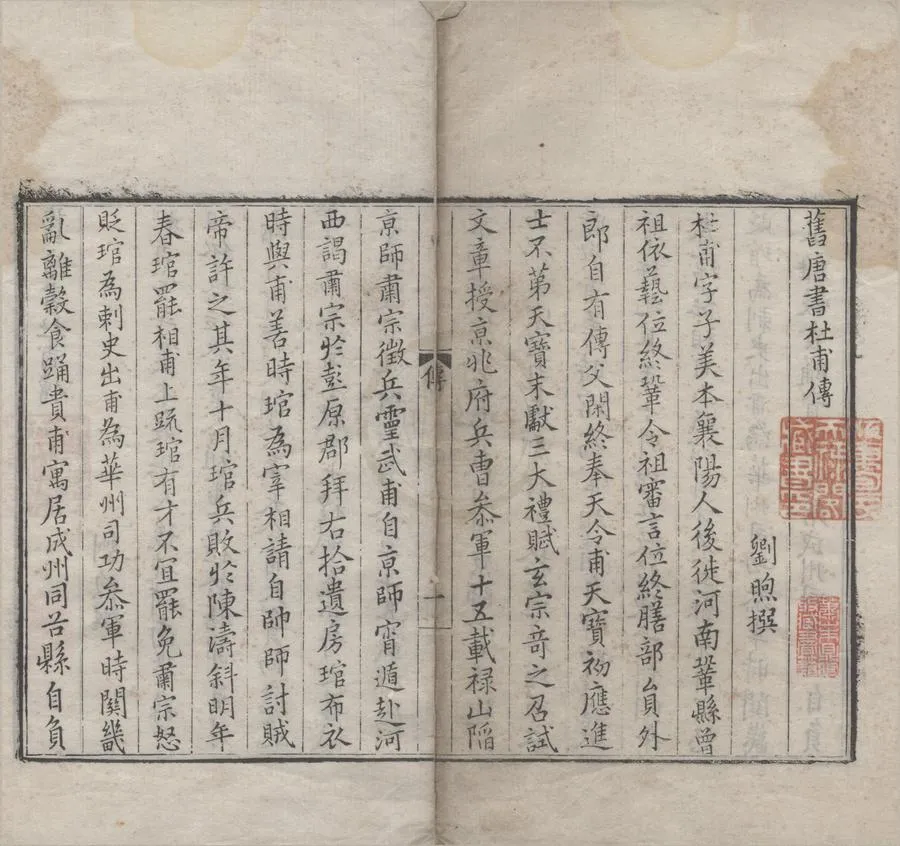 舊唐書杜甫傳
劉煦撰
杜甫字子美本襄陽人後徙河南鞏縣曾
祖依藝位終鞏令祖審言位終膳部貟外
郎自有傳父閑終奉天令甫天寶初應進
士不第天寶末獻三大禮賦玄宗竒之召試
文章授京兆府兵曹叅軍十五載祿山陷
京師肅宗徵兵靈武甫自京師宵遁赴河
西謁肅宗於彭原郡拜右拾遺房琯布衣
時與甫善時琯為宰相請自帥師討賊
帝許之其年十月琯兵敗於陳濤斜明年
春琯罷相甫上疏琯有才不宜罷免肅宗怒
貶琯為刺史出甫為華州司功叅軍時関畿
亂離穀食踊貴甫寓居成州同谷縣自負
傳
一